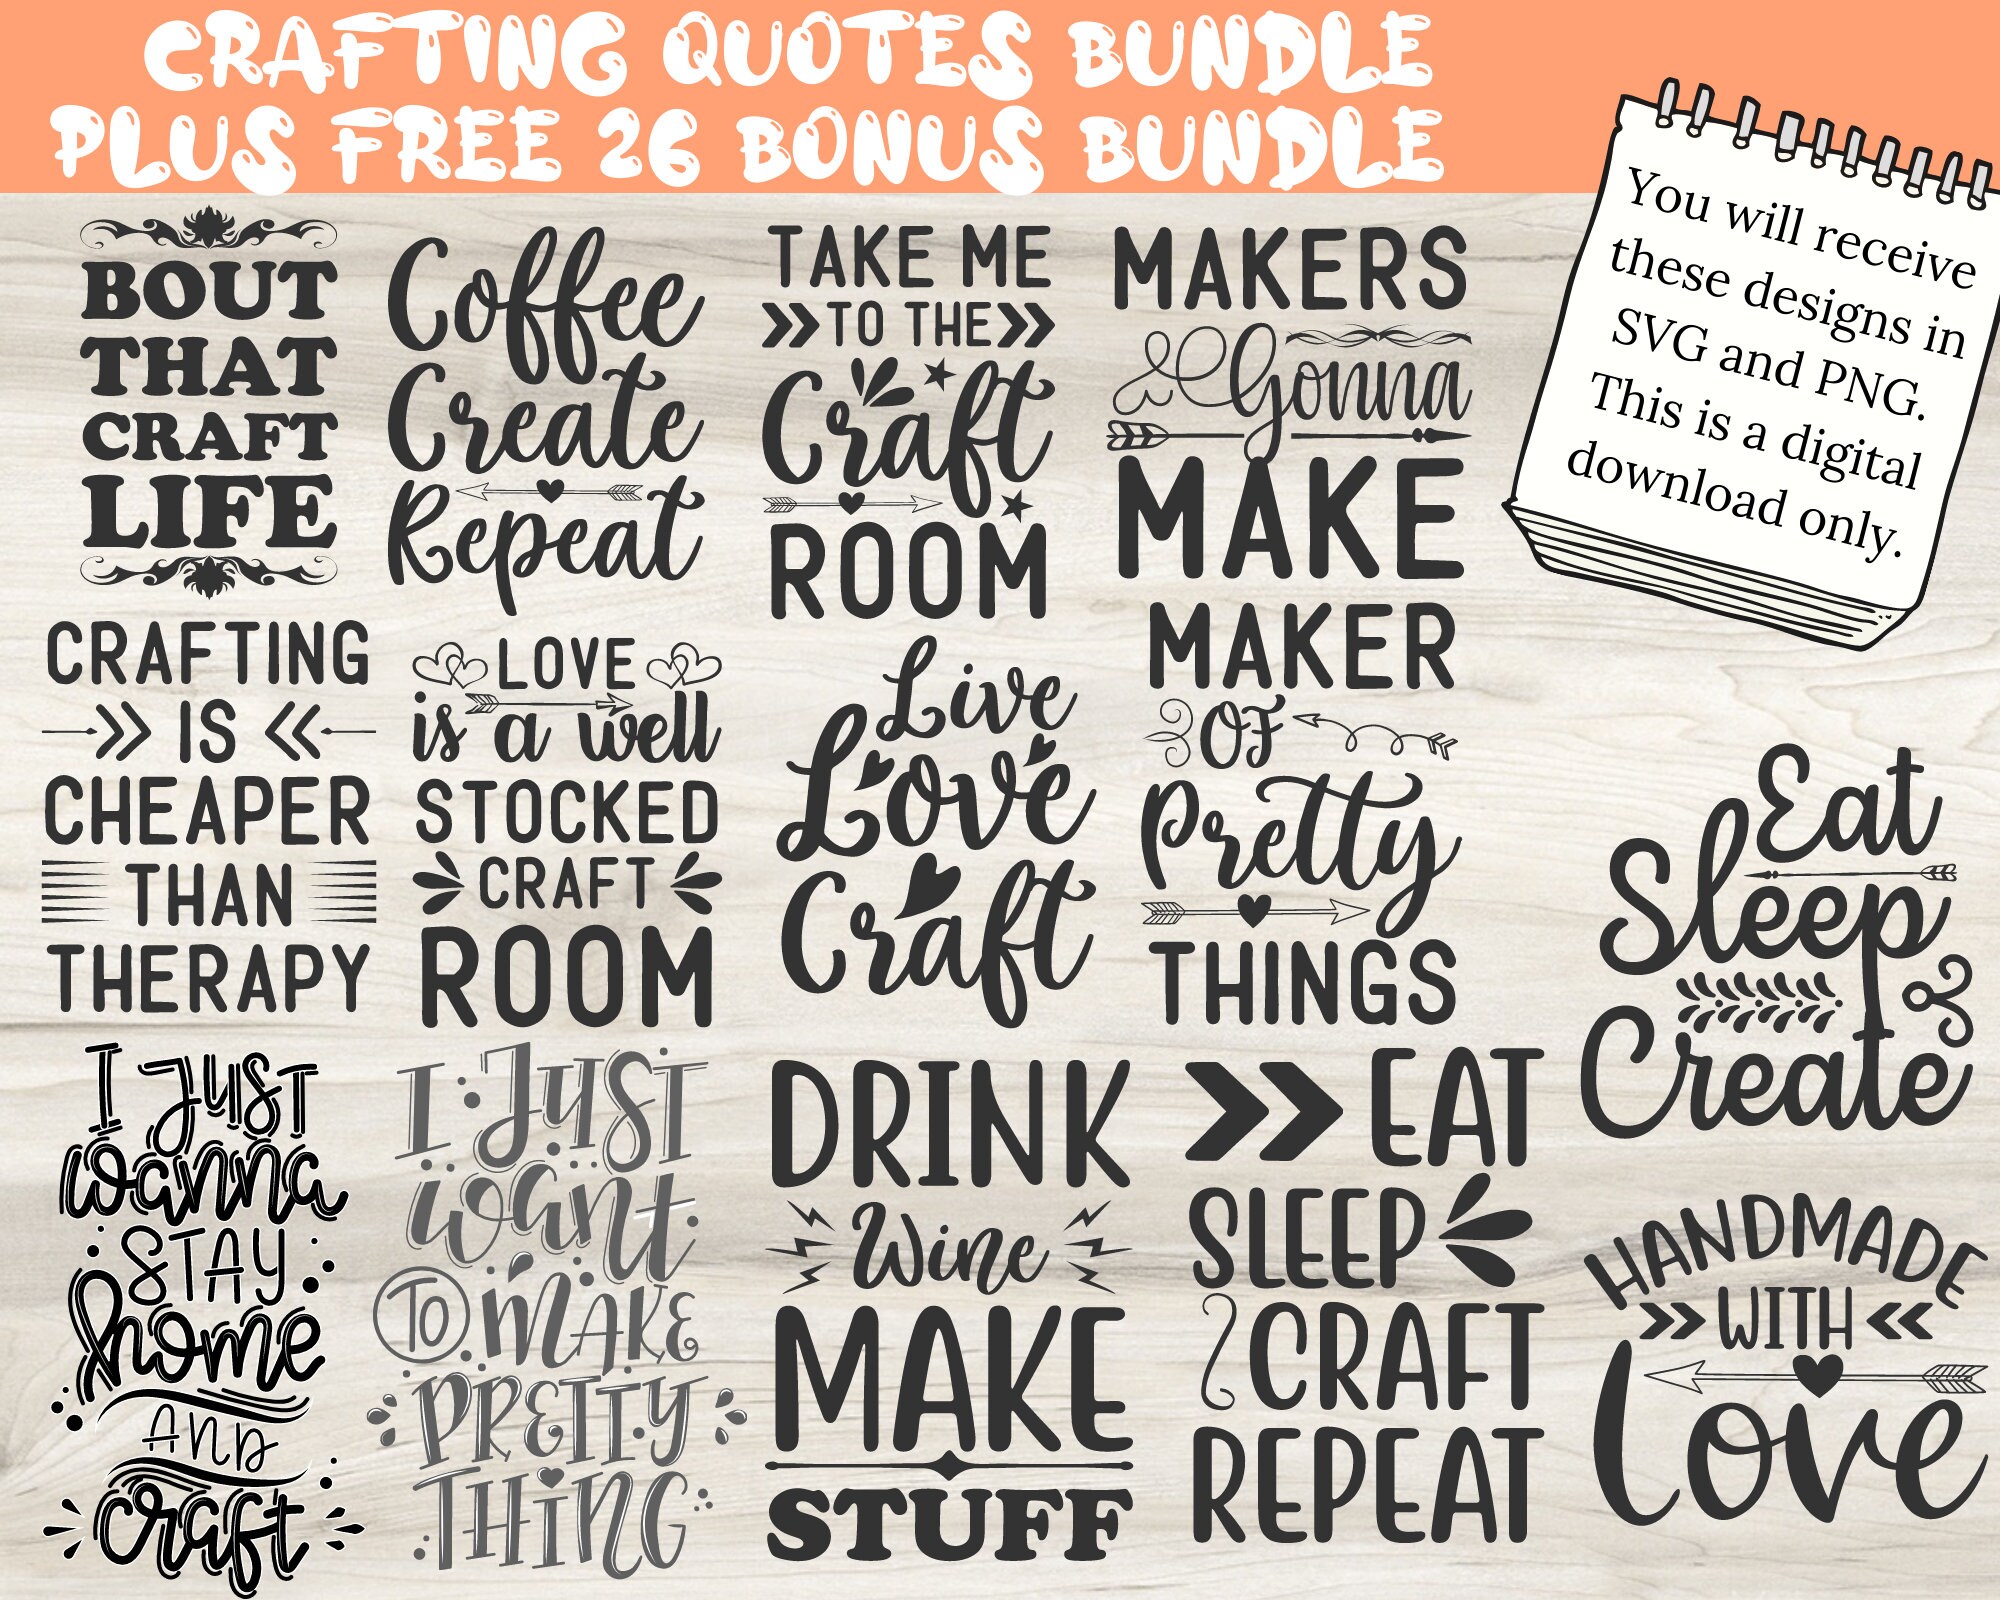 CRAFTING QUOTES BUNDLE
PLUS FREE 26 BONUS BUNDLE
You will receive
these designs in
SVG and PNG.
This is a digital
download only.
BOUT
THAT
CRAFT
LIFE
Coffee
Create
Repeat
TAKE ME
TO THE
Craft
ROOM
MAKERS
Gonna
MAKE
CRAFTING
IS
CHEAPER
THAN
THERAPY
LOVE
is a well
STOCKED
CRAFT
ROOM
Live
Love
Craft
MAKER
OF
Pretty
THINGS
Eat
Sleep
Create
I JUST
wanna
STAY
home
AND
craft
I JUST
want
TO MAKE
PRETTY
THING
DRINK
Wine
MAKE
STUFF
EAT
SLEEP
CRAFT
REPEAT
HANDMADE
WITH
Love